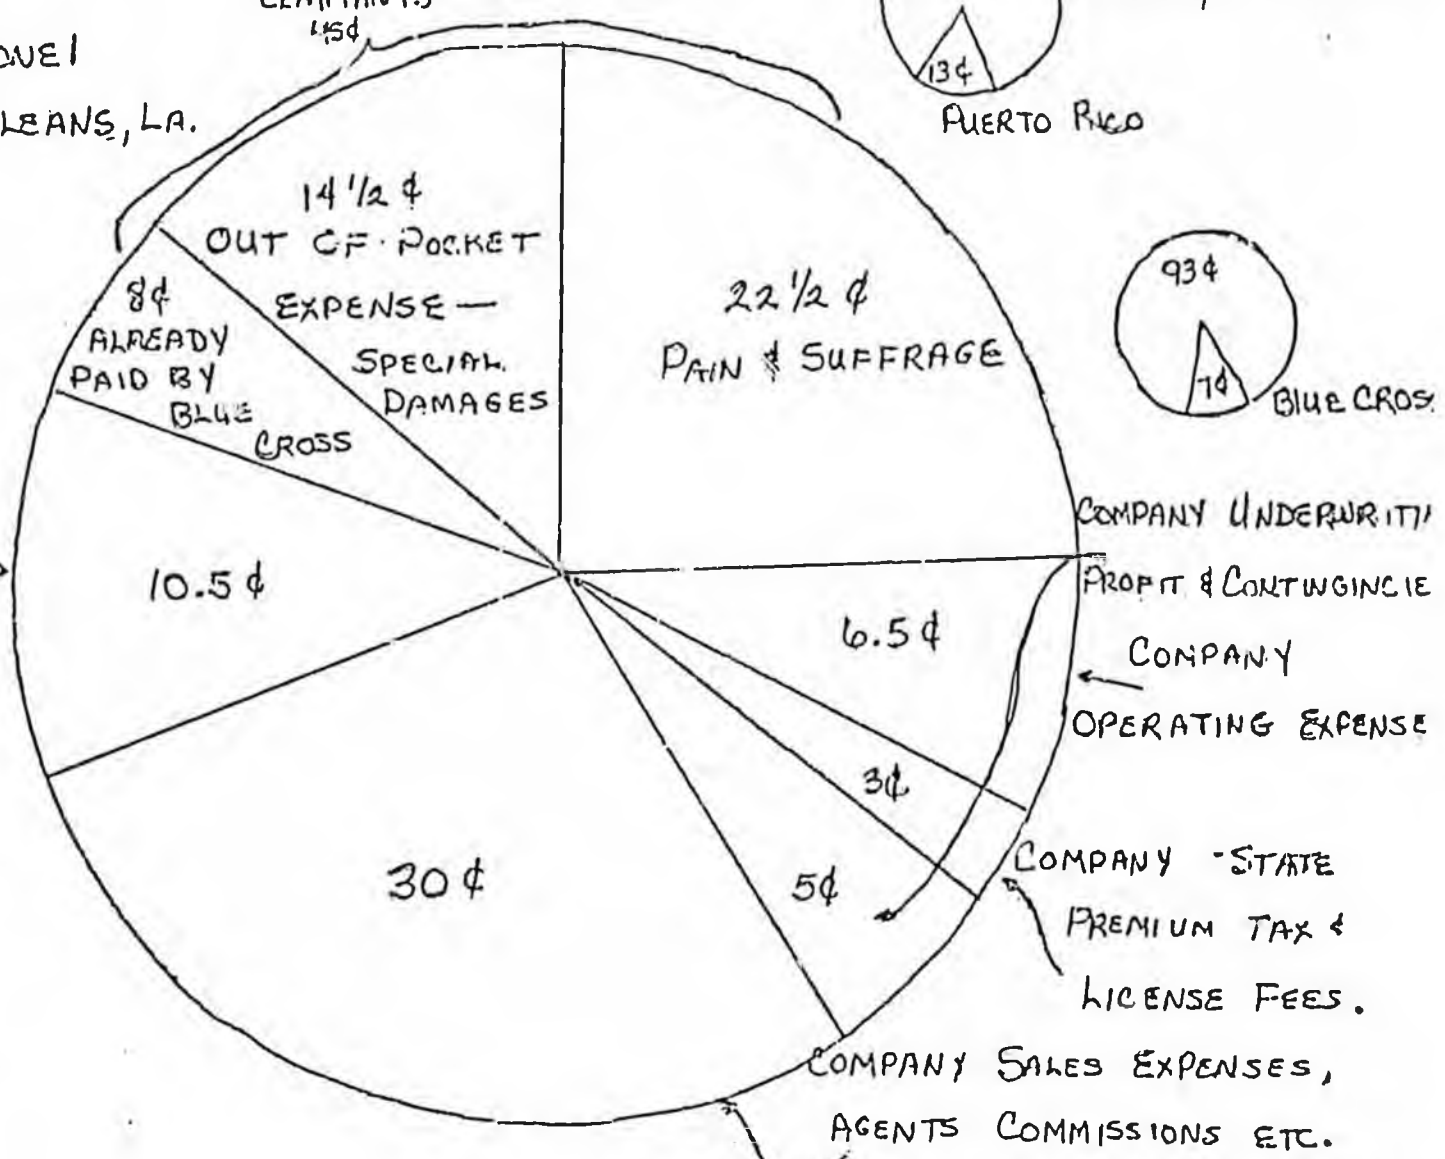 CLAIMANTS
45¢
LEANS, LA.
13¢
PUERTO RICO
14 1/2 ¢
OUT OF POCKET
EXPENSE —
SPECIAL
DAMAGES
8¢
ALREADY
PAID BY
BLUE
CROSS
22 1/2 ¢
PAIN & SUFFRAGE
93¢
7¢
BLUE CROS
10.5¢
6.5¢
3¢
5¢
30¢
COMPANY UNDERWRITI
PROFIT & CONTINGINCIE
COMPANY
OPERATING EXPENSE
COMPANY - STATE
PREMIUM TAX &
LICENSE FEES.
COMPANY SALES EXPENSES,
AGENTS COMMISSIONS ETC.